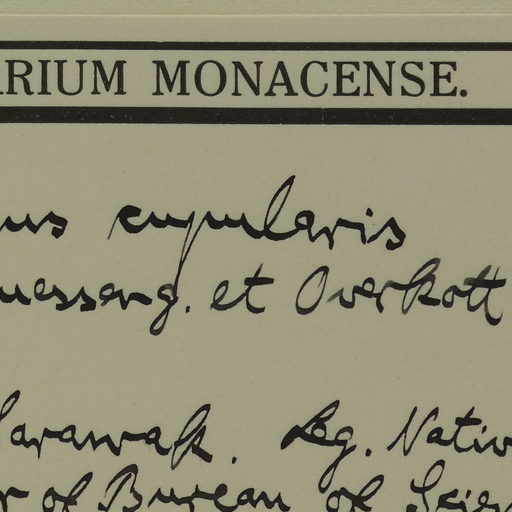 RIUM MONACENSE.
us cupularis
uesseng. et Overkott
Sarawak. Leg. Nativ
r of Bureau of Scien